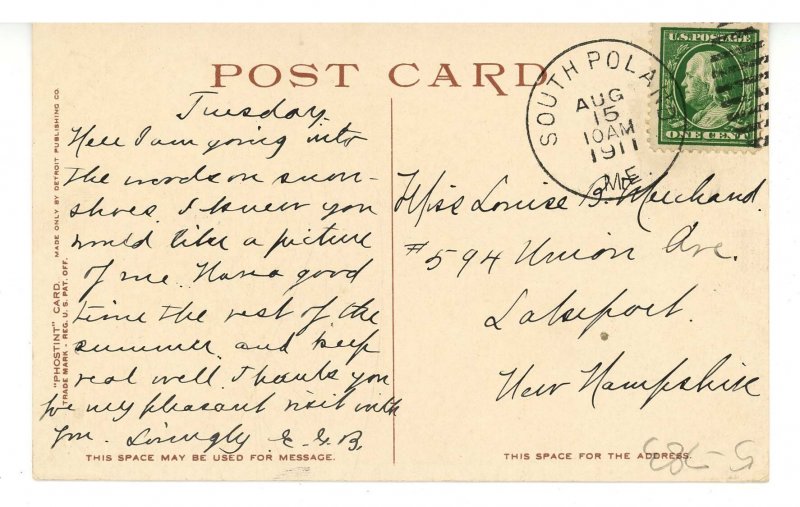 POST CARD
SOUTH POLAND
AUG
15
10AM
1911
ME.
U.S. POSTAGE
ONE CENT
Tuesday.
Here I am going into
the woods on snow-
shoes. I knew you
would like a picture
of me. Have a good
time the rest of the
summer, and keep
real well. Thank you
for my pleasant visit with
you. Lovingly E. G. B.
Miss Louise B. Merchand.
#594 Union Ave.
Lakeport.
New Hampshire
"PHOSTINT" CARD. MADE ONLY BY DETROIT PUBLISHING CO.
TRADE MARK - REG. U. S. PAT. OFF.
THIS SPACE MAY BE USED FOR MESSAGE.
THIS SPACE FOR THE ADDRESS.